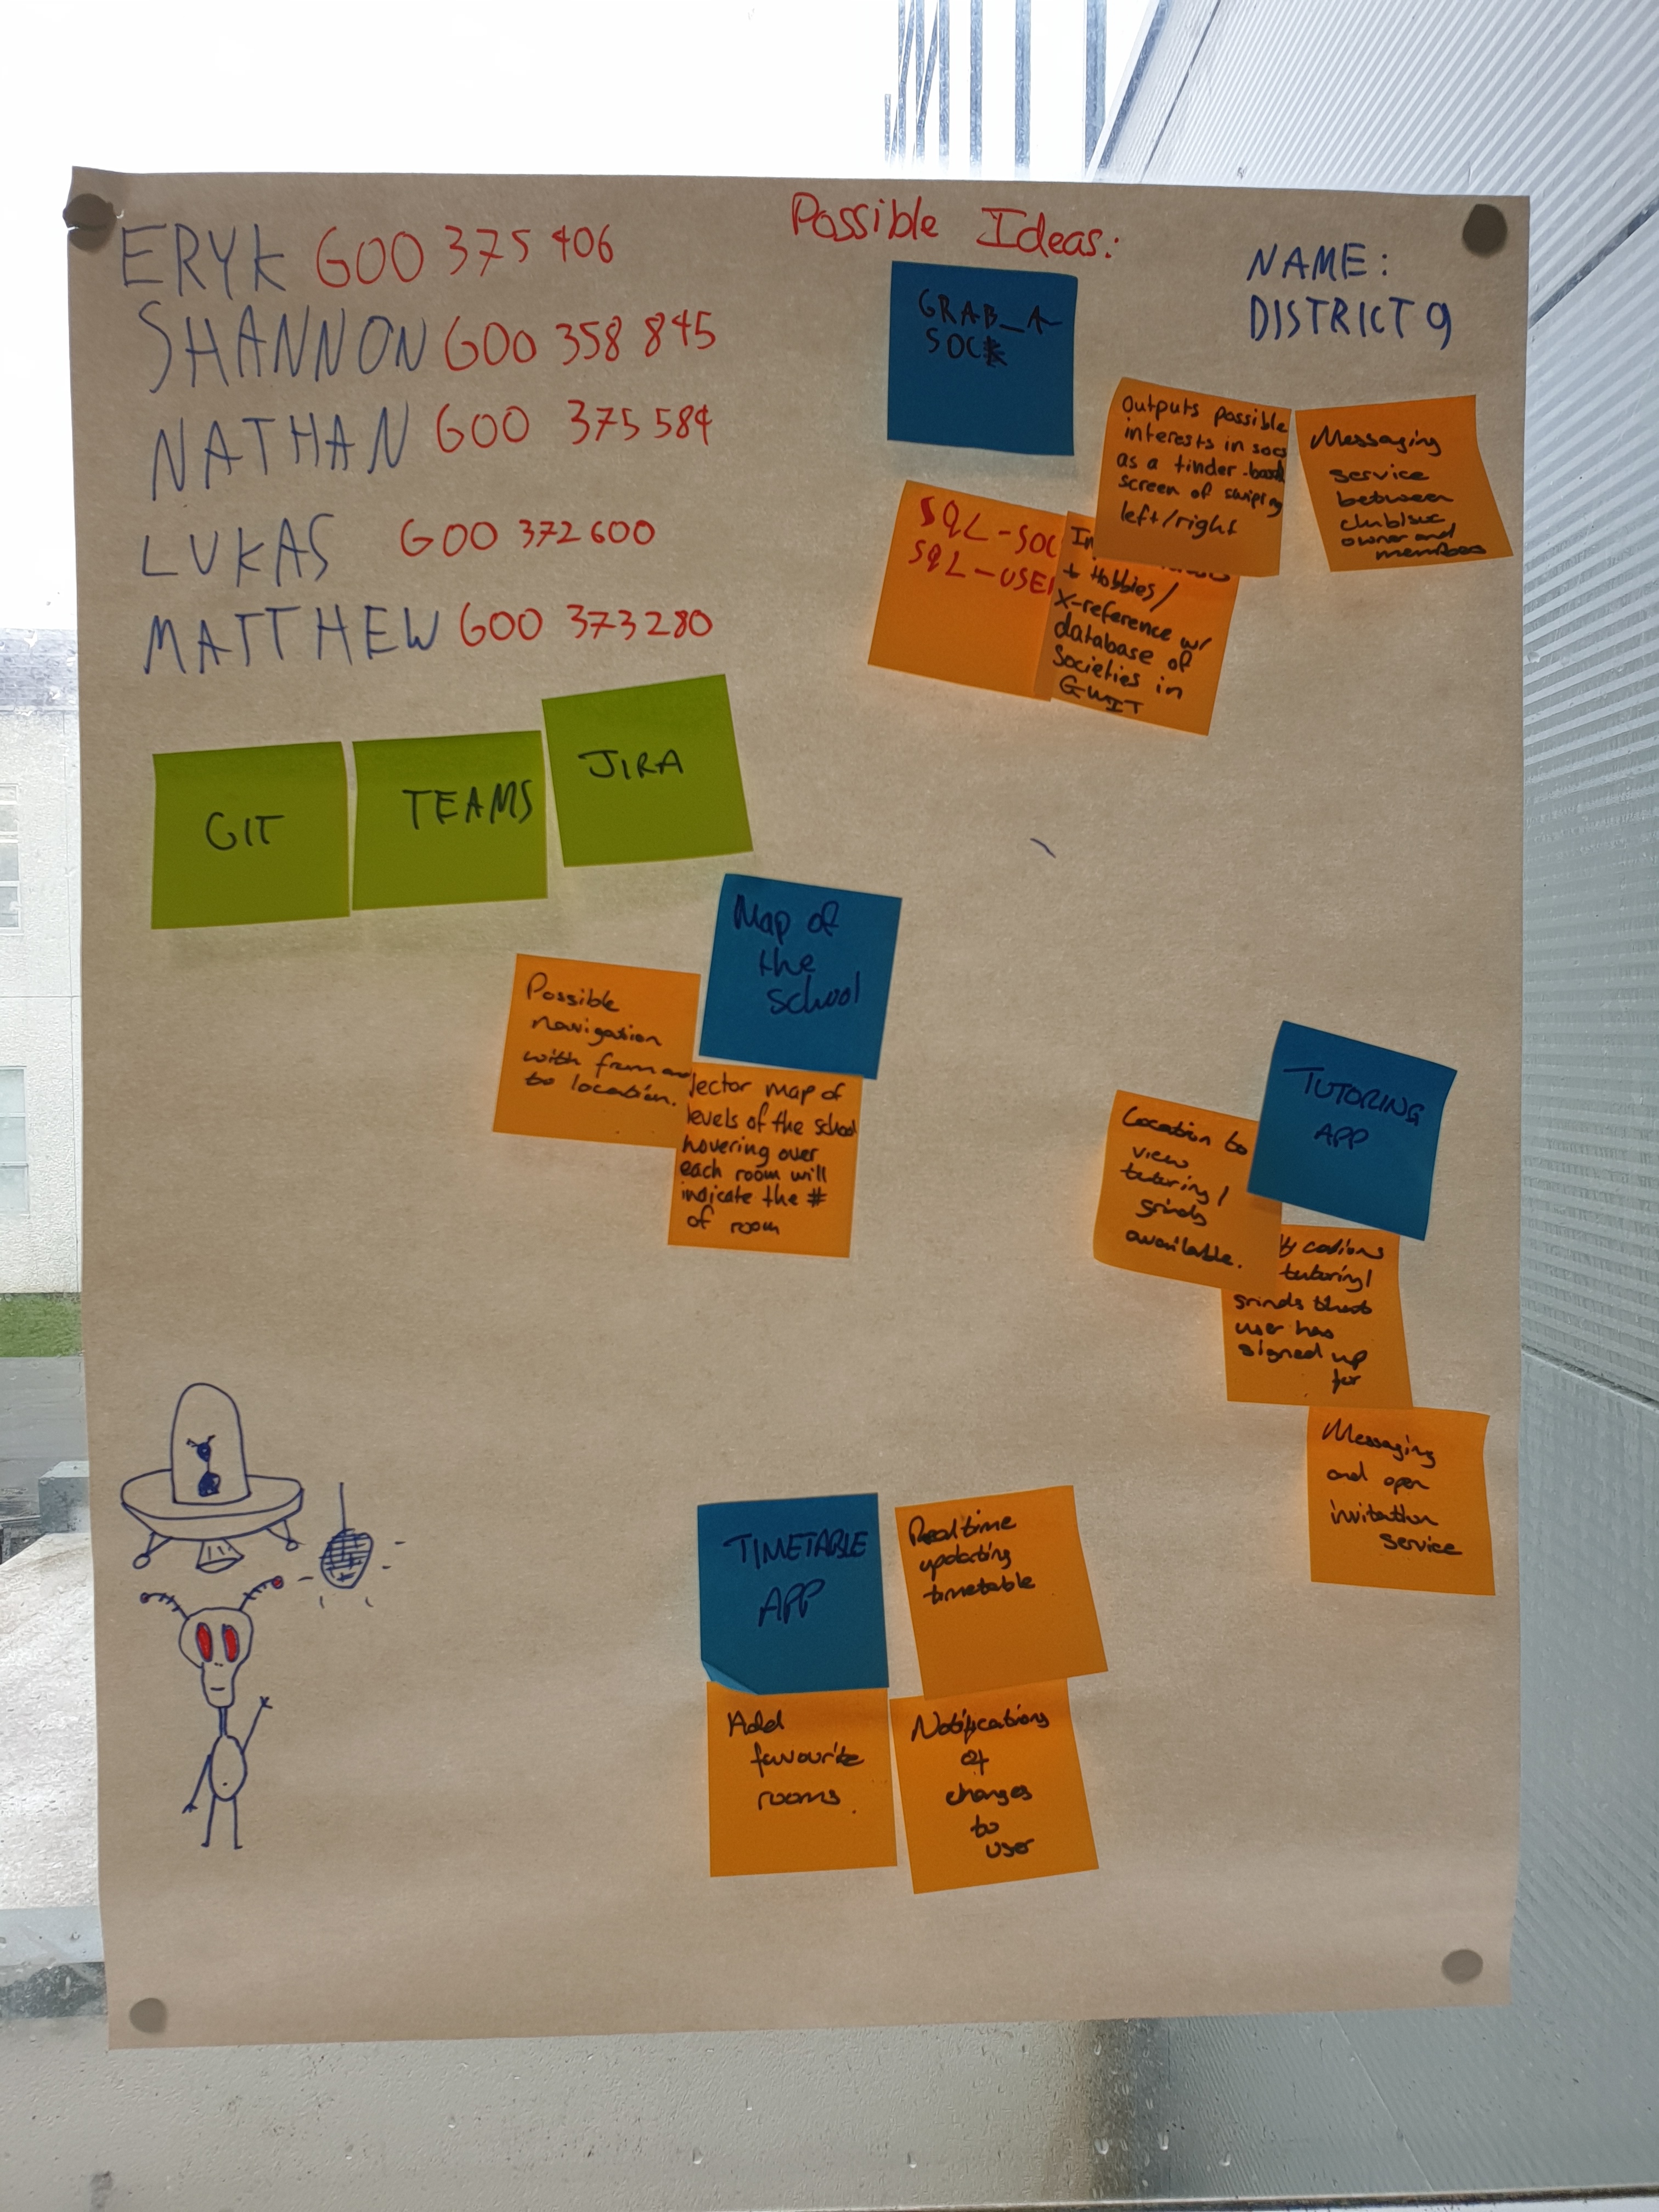 ERYK G00 375 406
SHANNON G00 358 845
NATHAN G00 375 584
LUKAS G00 372 600
MATTHEW G00 373 280
Possible Ideas:
NAME:
DISTRICT 9
GRAB_A
SOC
Outputs possible
interests in socs
as a tinder
screen of swiping
left/right
Messaging
service
between
club/soc
owner and
members
SQL-SOC
SQL-USE
+ Hobbies/
X-reference w/
database of
Societies in
GMIT
GIT
TEAMS
JIRA
Map of
the
school
Possible
navigation
with from
to location.
ector map of
levels of the school
hovering over
each room will
indicate the #
of room
TUTORING
APP
Location to
view
tutoring/
grinds
available.
cations
tutoring/
grinds that
user has
signed up
for
Messaging
and open
invitation
service
TIMETABLE
APP
Real time
updating
timetable
Add
favourite
rooms.
Notifications
of
changes
to
user